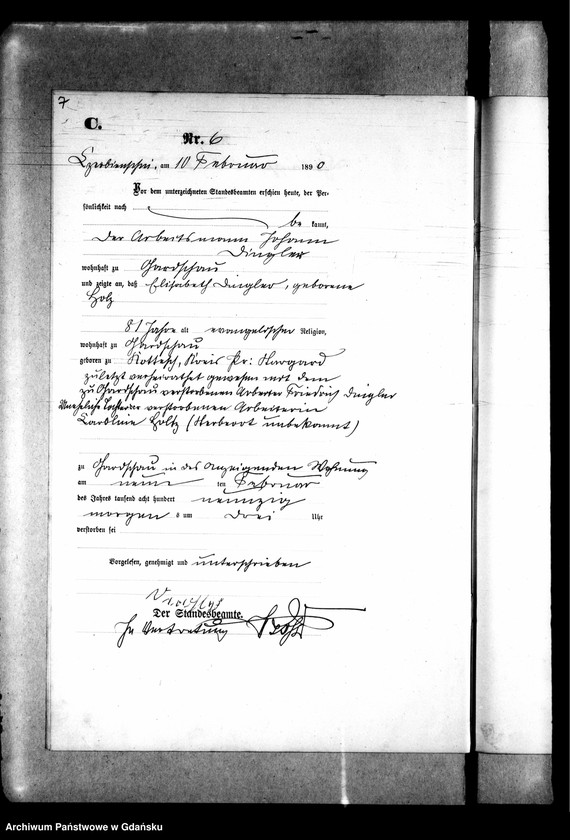 7
C.
Nr. 6
Czerbienschin, am 10 Februar 1890
Vor dem unterzeichneten Standesbeamten erschien heute, der Per-
sönlichkeit nach
be kannt,
der Arbeitsmann Johann
Dingler
wohnhaft zu Gardschau
und zeigte an, daß Elisabeth Dingler, geborene
Holz
81 Jahre alt evangelischer Religion,
wohnhaft zu Gardschau
geboren zu Kreis Pr. Stargard
zuletzt verheirathet gewesen mit dem
zu Gardschau verstorbenen Arbeiter Friedrich Dingler
Uneheliche Tochter der verstorbenen Arbeiterin
Caroline Holtz (Sterbeort unbekannt)
zu Gardschau in des Anzeigenden Wohnung
am neun ten Februar
des Jahres tausend acht hundert neunzig
morgen s um drei Uhr
verstorben sei
Vorgelesen, genehmigt und unterschrieben
Der Standesbeamte.
In Vertretung
Archiwum Państwowe w Gdańsku